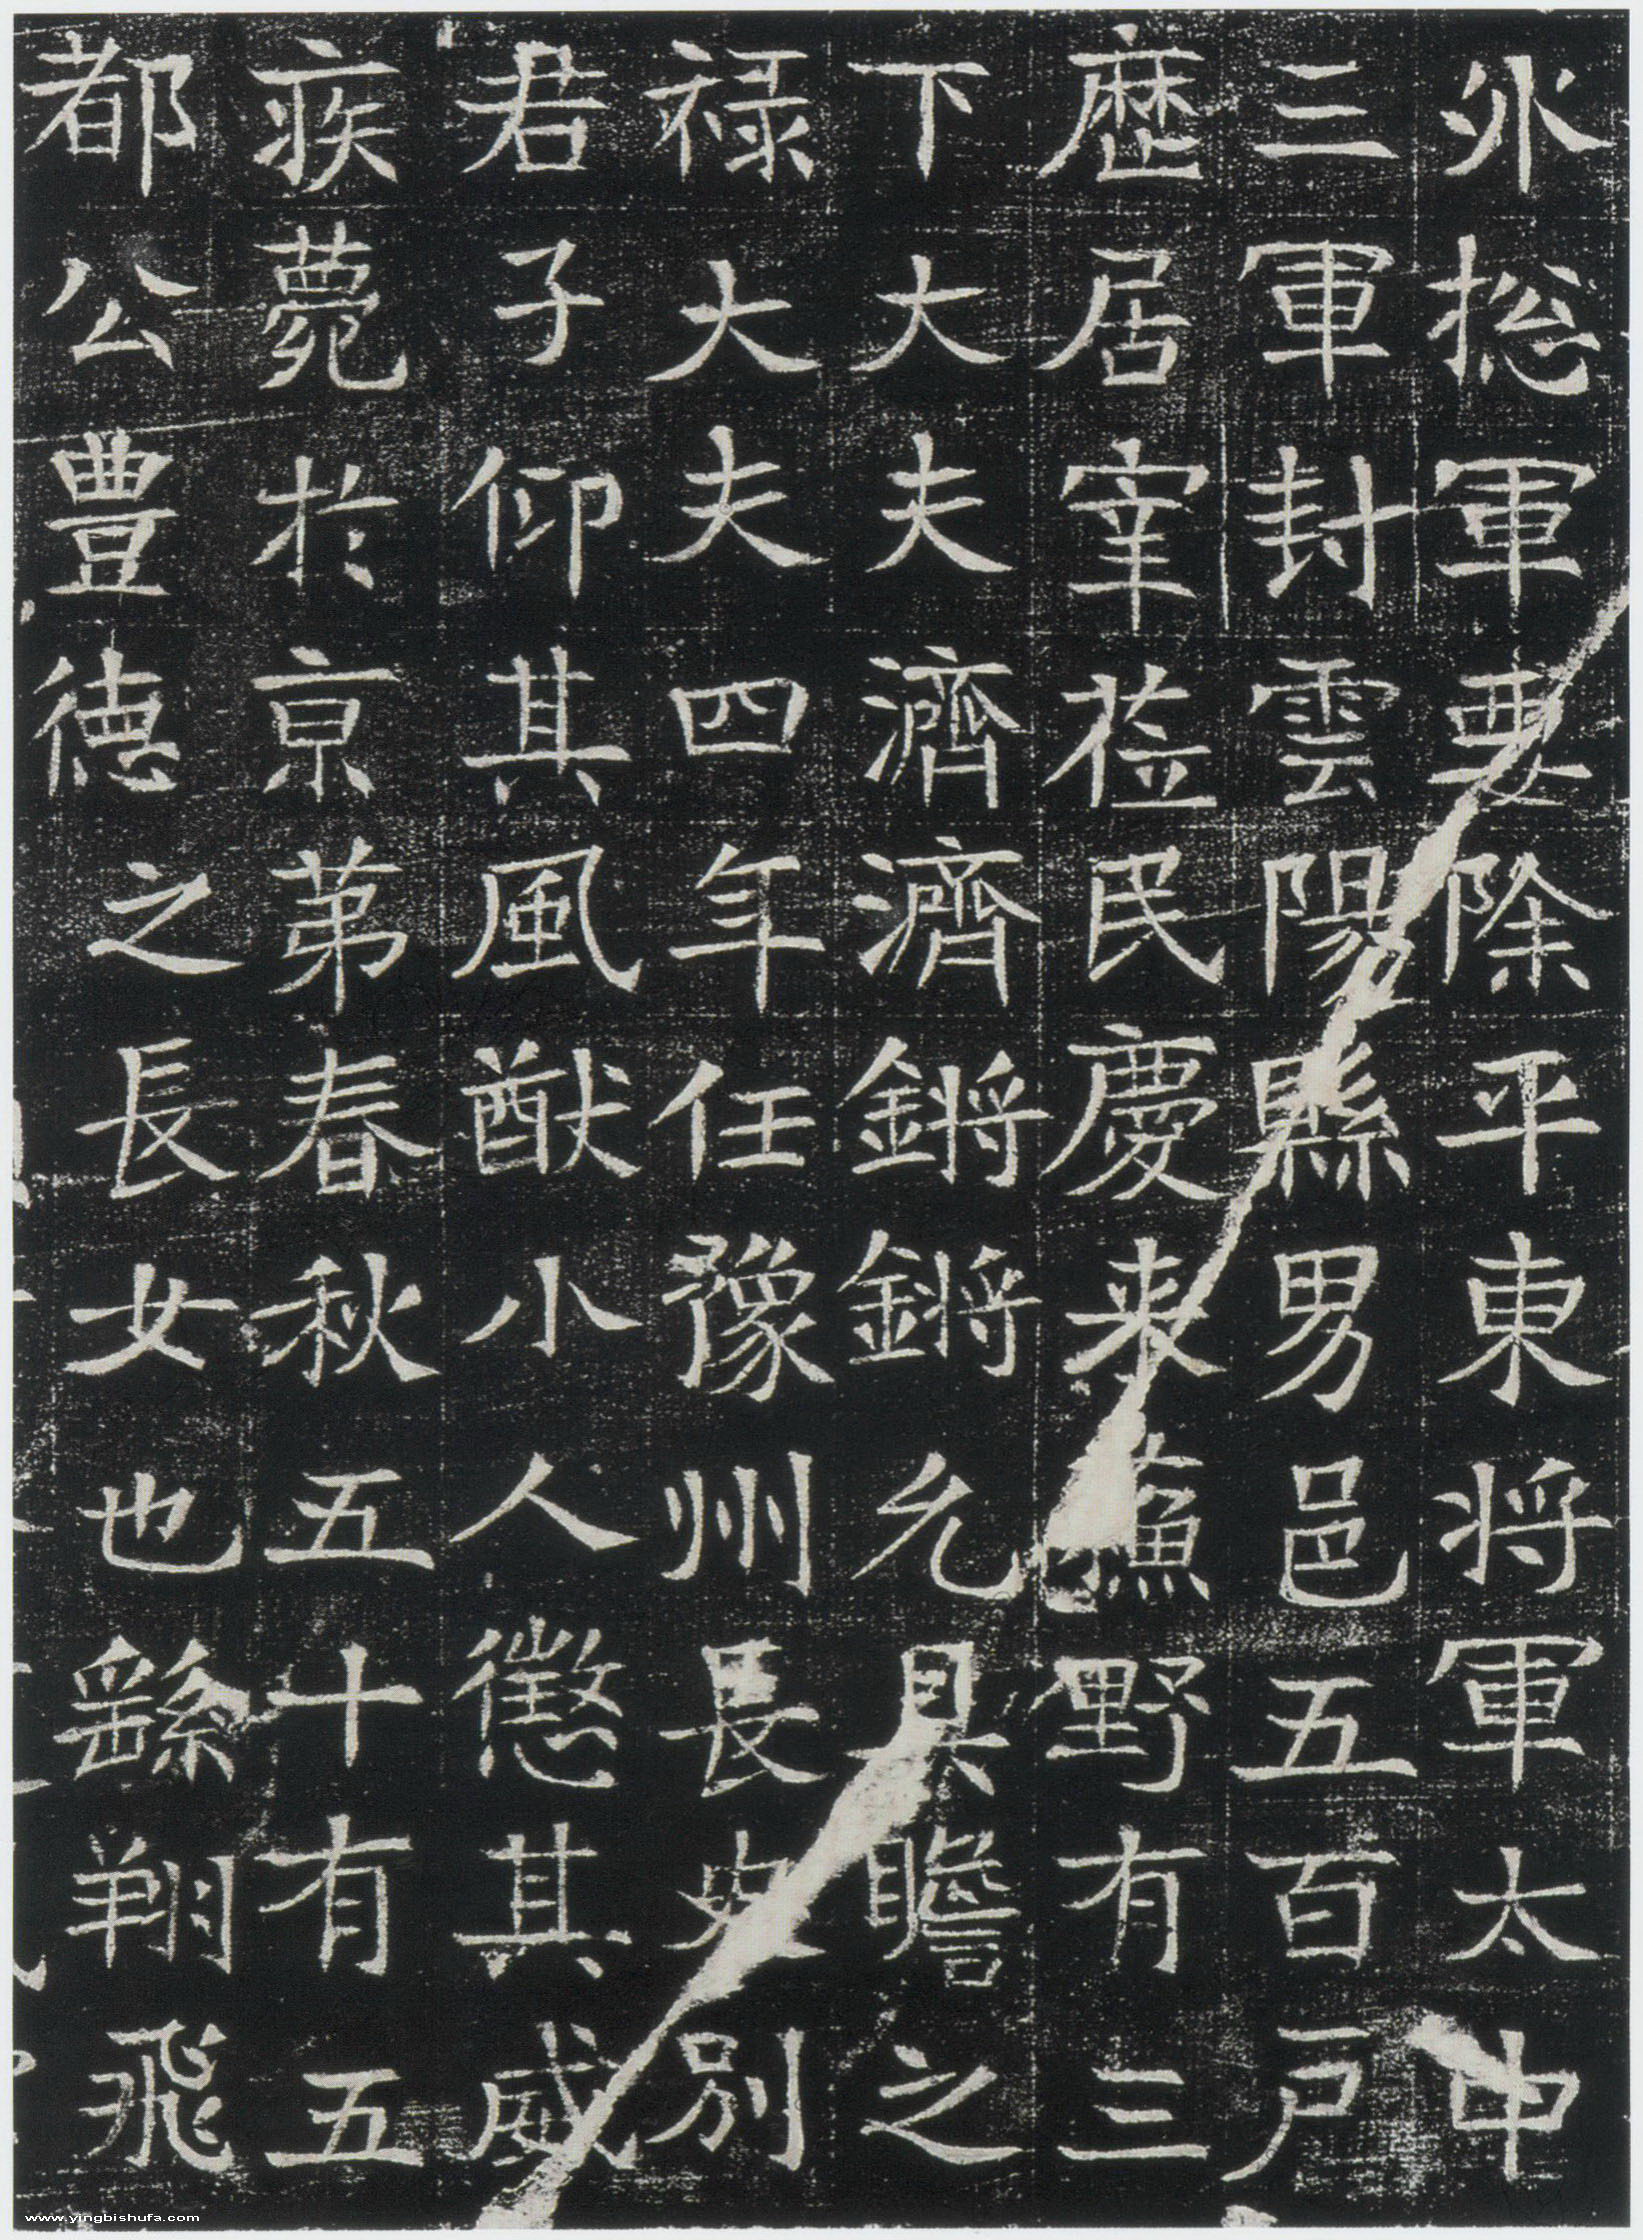 揔軍要除平東将軍太中
三軍封雲陽縣男邑五百户
歴居宰莅民慶来野有三
下大夫濟濟鏘鏘允具瞻之
禄大夫四年任豫州長史別
君子仰其風猷小人懲其威
疾薨於京第春秋五十有五
都公豊德之長女也繇翔飛
www.yingbishufa.com